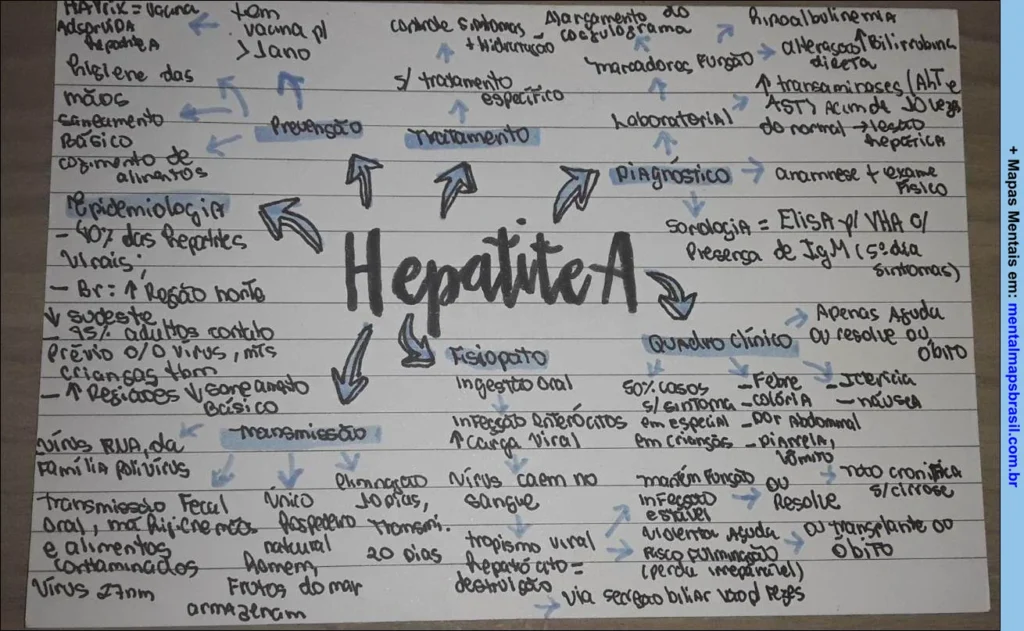 HAVRIX = Vacina
Adsorvida
Hepatite A
tem
vacina p/
> 1 ano
Higiene das
mãos
saneamento
Básico
cozimento de
alimentos
Prevenção
controle sintomas
+ Hidratação
s/ tratamento
específico
Tratamento
Alargamento do
coagulograma
Hipoalbulinemia
marcadores Função
alteração ↑Bilirrubina
direta
Laboratorial
↑ transaminases (Alt e
AST) Acima de 10 vezes
do normal → lesão
hepática
Diagnóstico
anamnese + exame
Físico
Sorologia = Elisa p/ VHA c/
Presença de IgM (5º dia
sintomas)
Epidemiologia
- 40% das Hepatites
virais;
- Br: ↑ Região norte
↓ sudeste
- 95% adultos contato
Prévio c/o vírus, mts
crianças tbm
- ↑ Regiões ↓ saneamento
Básico
Hepatite A
Quadro clínico
Apenas Aguda
ou resolve ou
óbito
50% casos
s/ sintoma
em especial
em crianças
- Febre
- colúria
- Dor Abdominal
- Diarreia,
vômito
- Icterícia
- náusea
Fisiopato
Ingestão oral
Infecção enterócitos
↑ carga viral
Vírus caem no
sangue
tropismo viral
Hepatócito =
destruição
via secreção biliar vão p/ fezes
mantém função
Infecção
estável
ou
Resolve
não cronifica
s/ cirrose
violenta Aguda
Risco Fulminação
(perda irreparável)
ou transplante ou
óbito
Transmissão
vírus RNA, da
Família polivírus
transmissão Fecal
oral, má higiene mãos
e alimentos
contaminados
Vírus 27nm
Único
Hospedeiro
natural
Homem,
Frutos do mar
armazenam
eliminação
10 dias,
transmi.
20 dias
+ Mapas Mentais em: mentalmapsbrasil.com.br